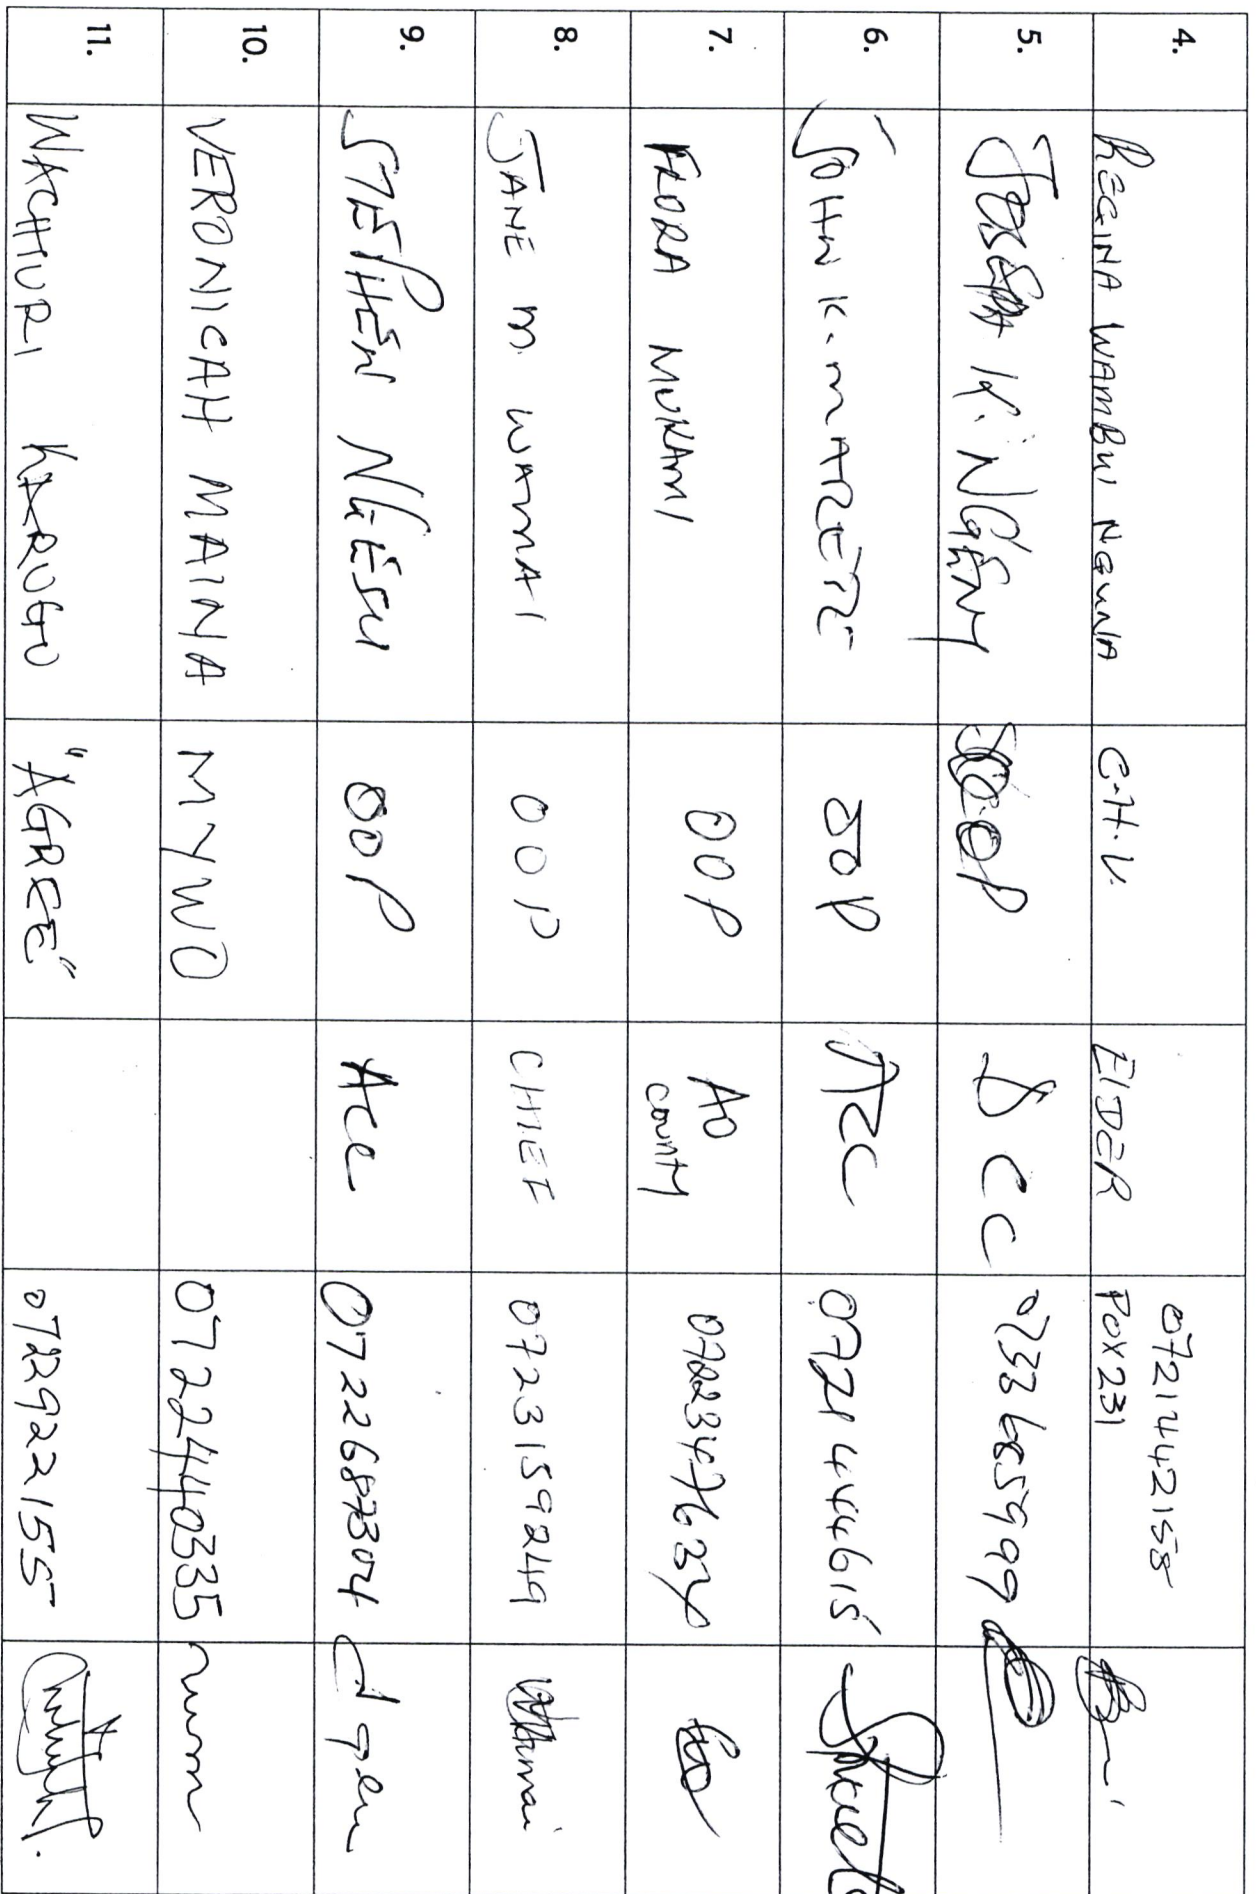 4. REGINA WAMBUI NGUNA C.H.V. ELDER 0721442158
POX 231
5. JOSEPH K. NGENY OOP DCC 0733685999
6. JOHN K. MARETE OOP ACC 0721444615
7. FLORA MUKAMI OOP AO
COUNTY 0722347637
8. JANE M. WAMAI OOP CHIEF 0723159249
9. STEPHEN NGESU OOP ACC 0722687304
10. VERONICAH MAINA MYWO 0722440335
11. WACHIURI KARUGO "AGREE" 0729922155